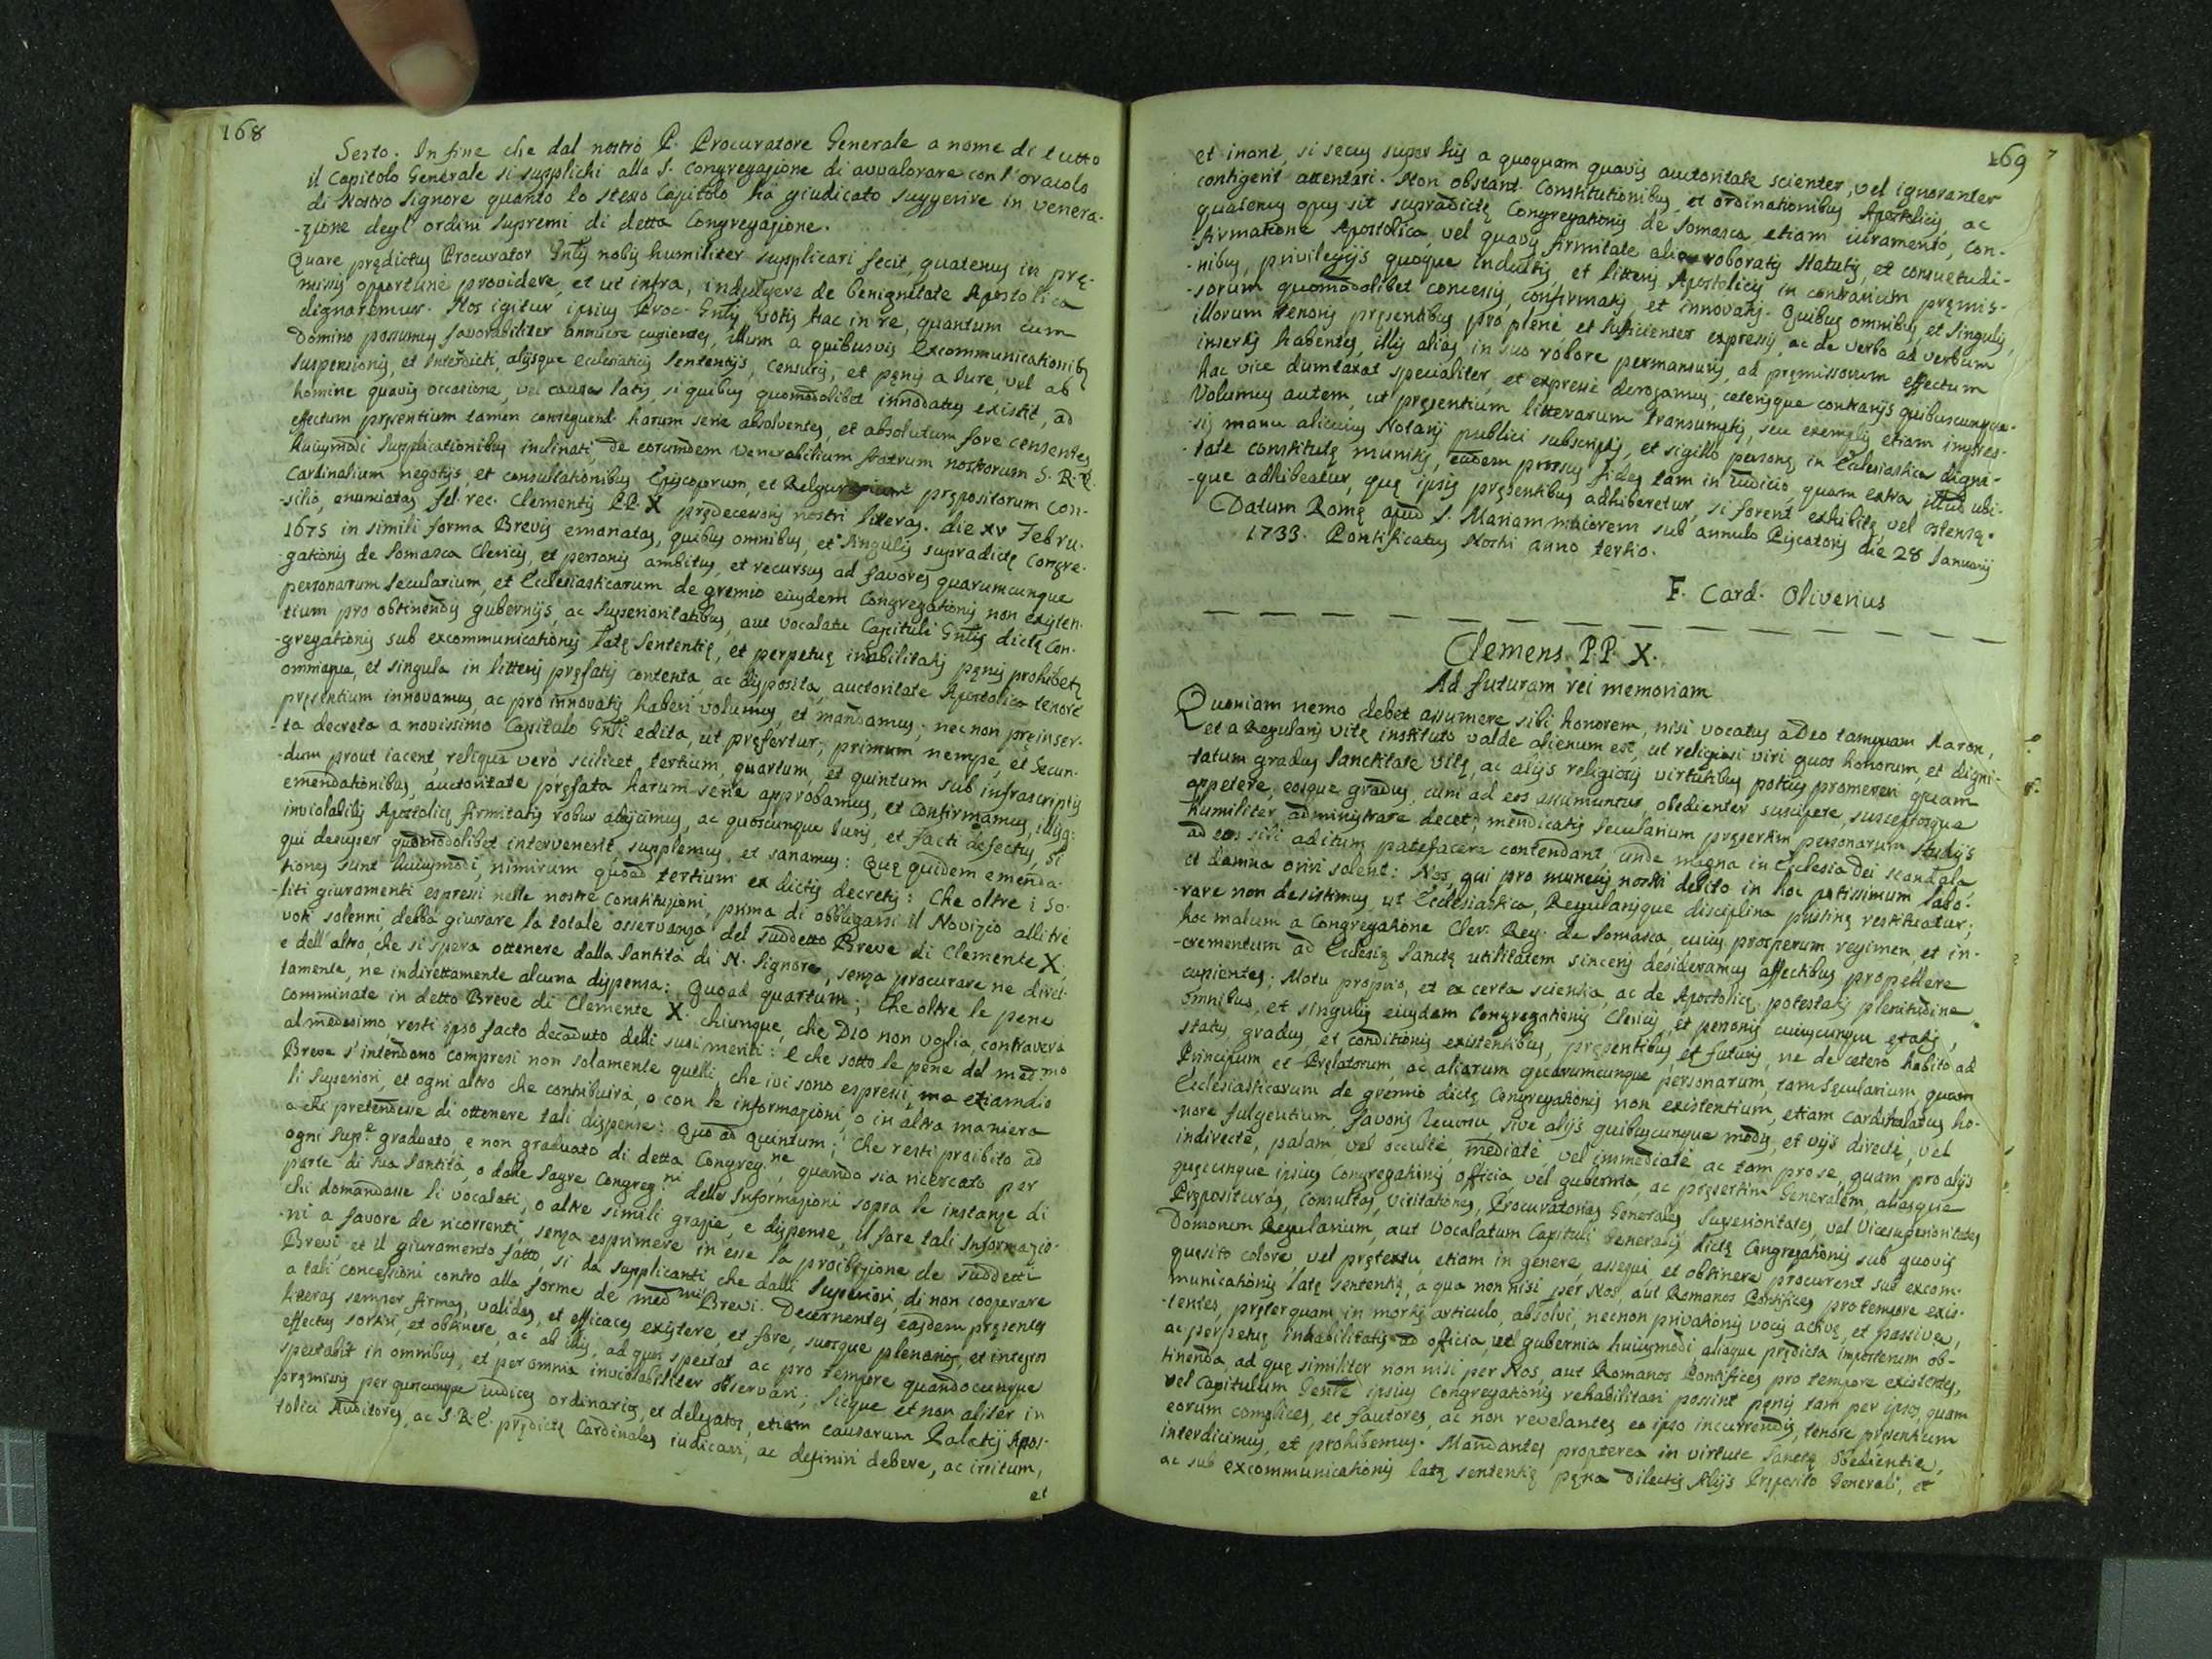 168
Sesto. In fine che dal nostro P. Procuratore Generale a nome di tutto
il Capitolo Generale si supplichi alla S. Congregazione di avvalorare con l'oracolo
di Nostro Signore quanto lo stesso Capitolo hà giudicato suggerire in venera-
-zione degl'ordini supremi di detta Congregazione.
Quare prędictus Procurator Gnlis nobis humiliter supplicari fecit, quatenus in prę-
missis opportunè providere, et ut infra, indulgere de benignitate Apostolica
dignaremur. Nos igitur ipsius Proc. Gnlis votis hac in re, quantum cum
Domino possumus favorabiliter annuere cupientes, illum a quibusvis excommunicationibs
suspensionis, et Interdicti, alijsque ecclesiasticis sententijs, censuris, et pęnis a Iure, vel ab
homine quavis occasione, vel causa latis, si quibus quomodolibet innodatus existit, ad
effectum pręsentium tamen consequend. harum serie absolventes, et absolutum fore censentes,
huiusmodi supplicationibus inclinati, de eorumdem venerabilium fratrum nostrorum S. R. E.
Cardinalium negotijs, et consultationibus Episcoporum, et Regularium prępositorum con-
-silio, enunciatas fel. rec. Clementis PP. X prędecessoris nostri litteras. die xv Febru.
1675 in simili forma Brevis emanatas, quibus omnibus, et singulis supradictę Congre-
-gationis de Somasca Clericis, et personis ambitus, et recursus ad favores quarumcunque
personarum secularium, et Ecclesiasticarum de gremio eiusdem Congregationis non existen-
tium pro obtinendis gubernijs, ac superioritatibus, aut vocalatu Capituli Gnlis dictę Con-
-gregationis sub excommunicationis latę sententię, et perpetuę inhabilitatis pęnis prohibets
omniaque, et singula in litteris pręfatis contenta, ac disposita, auctoritate Apostolica tenore
pręsentium innovamus, ac pro innovatis haberi volumus, et mandamus; nec non pręinser-
-ta decreta a novissimo Capitulo Gnli edita, ut pręfertur, primum nempe, et secun-
-dum prout iacent, reliqua verò scilicet, tertium, quartum, et quintum sub infrascriptis
emendationibus, auctoritate pręfata harum serie approbamus, et confirmamus, illisq:
inviolabilis Apostolicę firmitatis robur adijcimus, ac quoscunque Iuris, et facti defectus, si
qui desuper quomodolibet intervenerit, supplemus, et sanamus: Quę quidem emenda-
tiones sunt huiusmodi, nimirum quoad tertium ex dictis decretis: Che oltre i so-
-liti giuramenti espressi nelle nostre Constituzioni, prima di obbligarsi il Novizio alli trè
voti solenni, debba giurare la totale osservanza del suddetto Breve di Clemente X,
e dell'altro, che si spera ottenere dalla Santità di N. Signore, senza procurare ne diret-
tamente, ne indirettamente alcuna dispensa: Quoad quartum; Che oltre le pene
comminate in detto Breve di Clemente X. chiunque, che Dio non voglia, contraverà
al medesimo, resti ipso facto decaduto delli suoi meriti: E che sotto le pene del med.mo
Breve s'intendano compresi non solamente quelli, che ivi sono espressi, ma etiamdio
li Superiori, et ogni altro che contribuirà, o con le informazioni, o in altra maniera
a chi pretendesse di ottenere tali dispense: Quo ad quintum; Che resti proibito ad
ogni Sup.e graduato, e non graduato di detta Congreg.ne, quando sia ricercato per
parte di Sua Santità, o dalle Sagre Congreg.ni delle Informazioni sopra le instanze di
chi domandasse li vocalati, o altre simili grazie, e dispense, il fare tali Informazio-
-ni a favore de ricorrenti, senza esprimere in esse la proibizione de suddetti
Brevi, et il giuramento fatto, si da supplicanti che dalli Superiori, di non cooperare
a tali concessioni contro alla forma de med.mi Brevi. Decernentes easdem pręsentes
litteras semper firmas, validas, et efficaces existere, et fore, suosque plenarios, et integros
effectus sortiri, et obtinere, ac ab illis, ad quos spectat, ac pro tempore quandocunque
spectabit in omnibus, et per omnia inviolabiliter observari; Sicque et non aliter in
pręmissis per quoscunque iudices ordinarios, et delegatos, etiam causarum Palatij Apos-
tolici Auditores, ac S.R.E. prędictę Cardinales iudicari, ac definiri debere, ac irritum,
et
169
et inane, si secus super his a quoquam quavis auctoritate scienter, vel ignoranter
contigerit attentari. Non obstant. Constitutionibus, et ordinationibus Apostolicis, ac
quatenus opus sit supradictę Congregationis de Somasca, etiam iuramento, con-
-firmatione Apostolica, vel quavis firmitate alia roboratis statutis, et consuetudi-
-nibus, privilegijs quoque indultis, et litteris Apostolicis in contrarium pręmis-
-sorum quomodolibet concessis, confirmatis, et innovatis. Quibus omnibus, et singulis,
illorum tenoris pręsentibus pro plenè et sufficienter expressis, ac de verbo ad verbum
insertis habentes, illis alias in suo robore permansuris, ad pręmissorum effectum
hac vice dumtaxat specialiter, et expressè derogamus, ceterisque contrarijs quibuscunque.
Volumus autem, ut pręsentium litterarum transumptis, seu exemplis etiam impres-
-sis manu alicuius Notarij publici subscriptis, et sigillo personę in Ecclesiastica digni-
-tate constitutę munitis, eadem prorsus fides tam in Iudicio, quam extra illud ubi-
-que adhibeatur, quę ipsis pręsentibus adhiberetur, si forent exhibitę, vel ostensę.
Datum Romę apud S. Mariam maiorem sub annulo Piscatoris die 28 Ianuarij
1733. Pontificatus Nostri anno tertio.
F. Card. Oliverius
Clemens. P.P. X.
Ad futuram rei memoriam
Quoniam nemo debet assumere sibi honorem, nisi vocatus a Deo tamquam Aaron,
et a Regularis vitę instituto valde alienum est, ut religiosi viri quos honorum, et digni-
tatum gradus sanctitate vitę, ac alijs religiosis virtutibus potius promereri quam
appetere, eosque gradus, cum ad eos assumuntur obedienter suscipere, susceptosque
humiliter administrare decet; mendicatis secularium pręsertim personarum studijs
ad eos sibi aditum patefacere contendant, unde magna in Ecclesia Dei scandala,
et damna oriri solent: Nos, qui pro muneris nostri debito in hoc potissimum labo-
-rare non desistimus, ut Ecclesiastica, Regularisque disciplina pristinę restituatur;
hoc malum a Congregatione Cler. Reg. de Somasca, cuius prosperum regimen, et in-
-crementum ad Ecclesię Sanctę utilitatem sinceris desideramus affectibus propellere
cupientes; Motu proprio, et ex certa scientia, ac de Apostolicę potestatis plenitudine,
omnibus, et singulis eiusdem Congregationis Clericis, et personis cuiuscunque ętatis,
status, gradus, et conditionis existentibus, pręsentibus, et futuris, ne de cętero habito ad
Principum et Prelatorum, ac aliarum quarumcunque personarum, tam sęcularium quam
Ecclesiasticarum de gremio dictę Congregationis non existentium, etiam Cardinalatus ho-
-nore fulgentium, favoris recursu, sive alijs quibuscunque modis, et vijs directè, vel
indirectè, palam, vel occultè, mediatè vel immediatè, ac tam pro se, quam pro alijs
quęcunque ipsius Congregationis officia, vel gubernia, ac pręsertim Generalem, aliasque
Pręposituras, Consultas, Visitationes, Procuratorias Generales, Superioritates, vel Vicesuperioritates
Domorum Regularium, aut Vocalatum Capituli Generalis dictę Congregationis sub quovis
quęsito colore, vel prętextu, etiam in genere assequi, et obtinere procurent sub excom-
municationis latę sententię, a qua non nisi per Nos, aut Romanos Pontifices pro tempore exis-
-tentes, pręterquam in mortis articulo, absolvi, necnon privationis vocis activę, et passivę,
ac perpetuę inhabilitatis ad officia, vel gubernia huiusmodi, aliaque prędicta imposterum ob-
tinenda, ad quę similiter non nisi per Nos, aut Romanos Pontifices pro tempore existentes,
vel Capitulum Genle ipsius Congregationis rehabilitari possint pęnis tam per ipsos, quam
eorum complices, et fautores, ac non revelantes eo ipso incurrendis, tenore pręsentium
interdicimus, et prohibemus. Mandantes propterea in virtute Sanctę Obedientię,
ac sub excommunicationis latę sententię pęna dilectis filijs Pręposito Generali, et